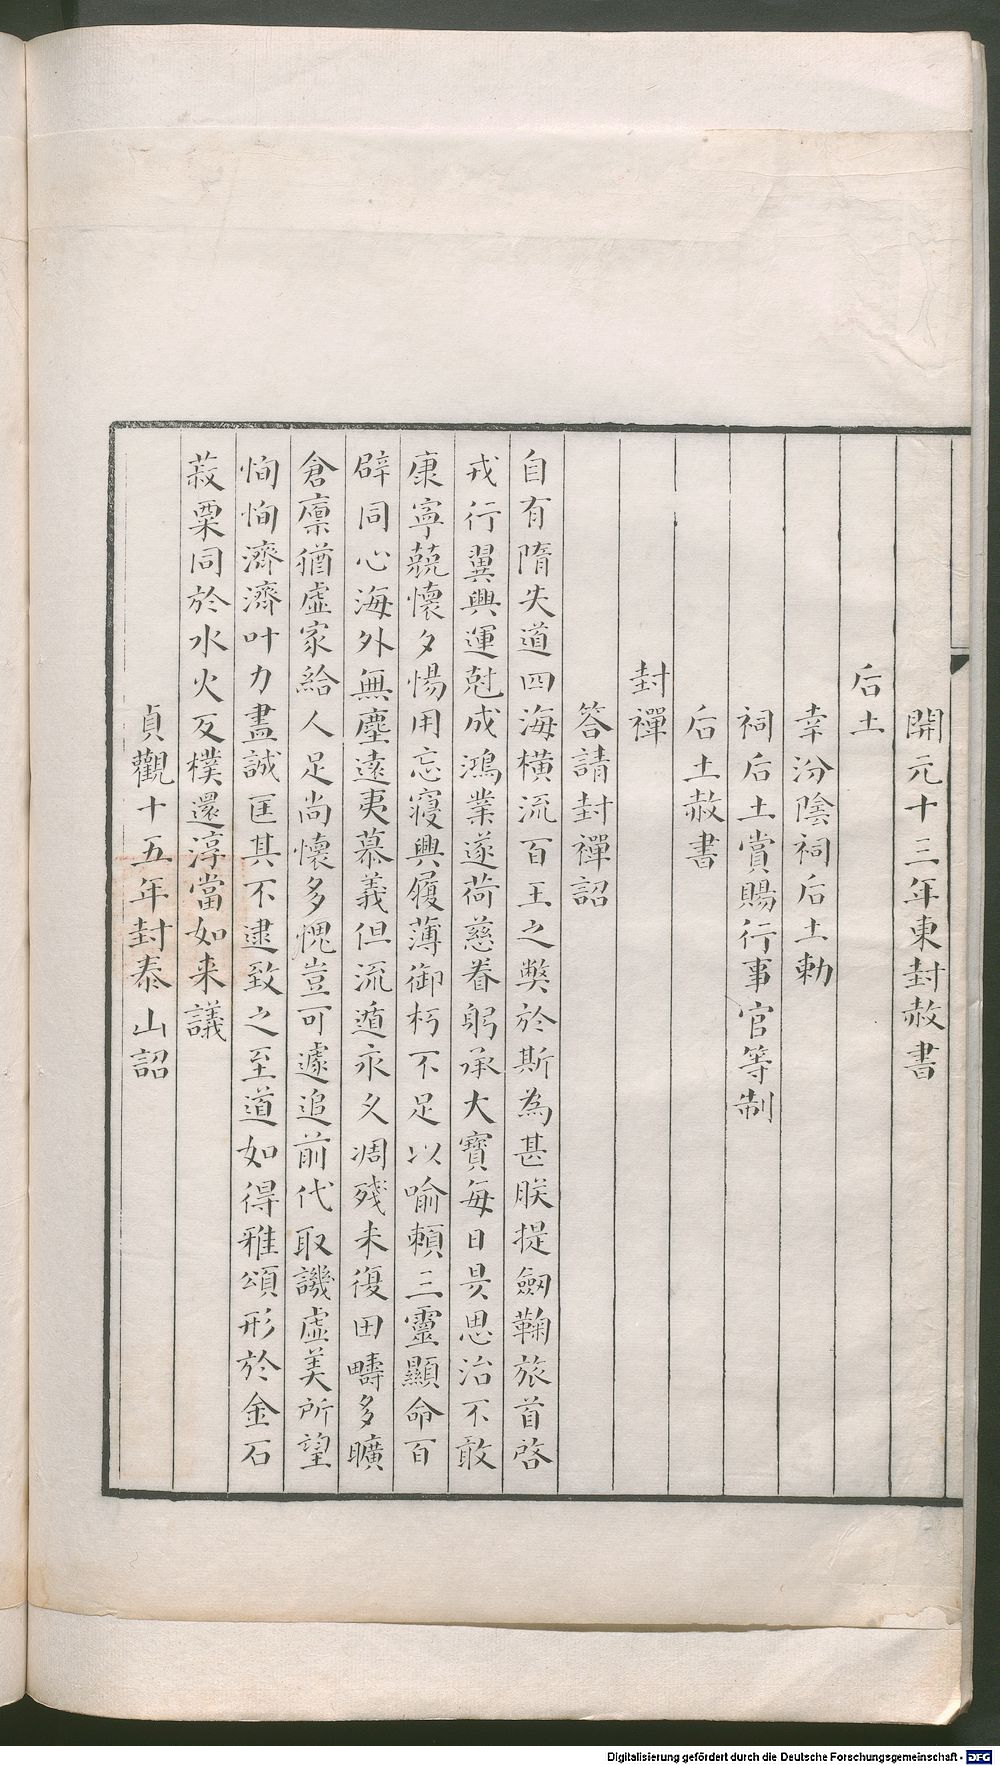 開元十三年東封赦書
后土
幸汾陰祠后土勅
祠后土賞賜行事官等制
后土赦書
封禪
答請封禪詔
自有隋失道四海橫流百王之弊於斯為甚朕提劒鞠旅首啓
戎行翼興運尅成鴻業遂荷慈眷躬承大寶每日昃思治不敢
康寧兢懷夕惕用忘寢興履薄御朽不足以喻賴三靈顯命百
辟同心海外無塵遠夷慕義但流遁永久凋殘未復田疇多曠
倉廩猶虛家給人足尚懷多愧豈可遽追前代取譏虛美所望
恂恂濟濟叶力盡誠匡其不逮致之至道如得雅頌形於金石
菽粟同於水火反樸還淳當如来議
貞觀十五年封泰山詔
Digitalisierung gefördert durch die Deutsche Forschungsgemeinschaft - DFG